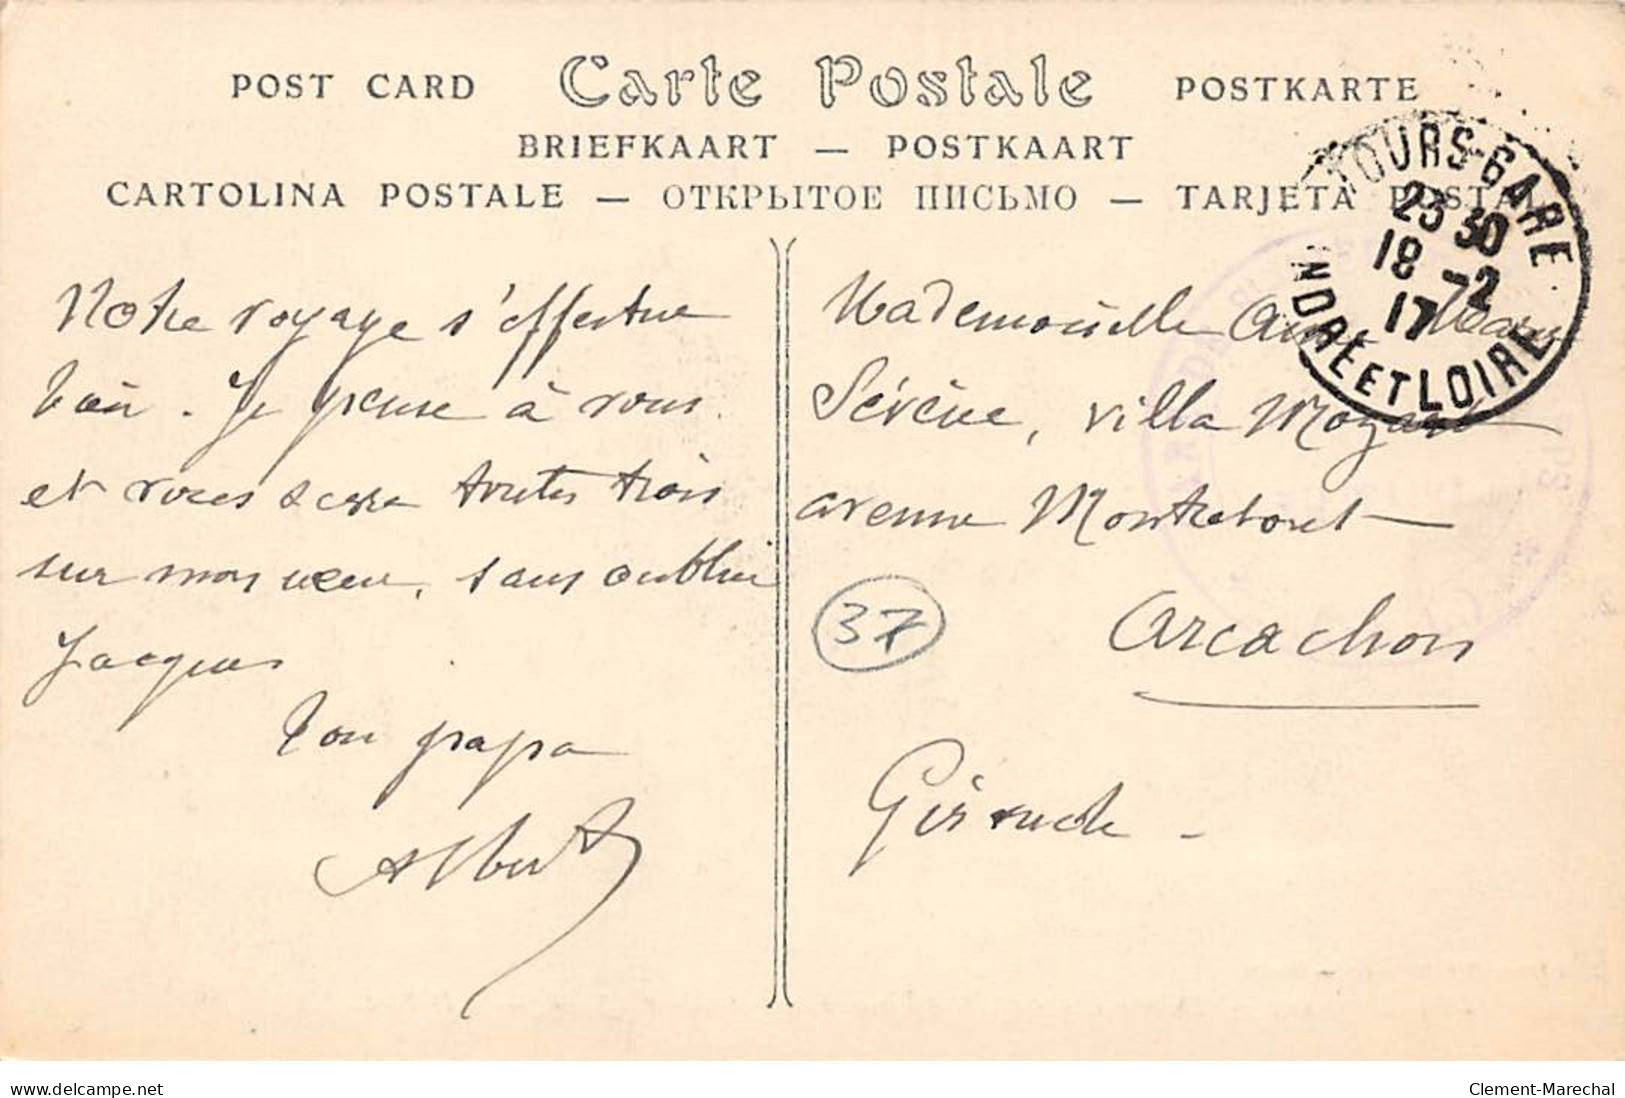 POST CARD Carte Postale POSTKARTE
BRIEFKAART — POSTKAART
CARTOLINA POSTALE — ОТКРЫТОЕ ПИСЬМО — TARJETA POSTAL
TOURS-GARE
23 30
18 -2
17
INDRE ET LOIRE
Notre voyage s'effectue
bien. Je pense à vous
et vous serre toutes trois
sur mon cœur, sans oublier
Jacques
Ton papa
Albert
Mademoiselle Anne Marie
Sérène, villa Mozart
avenue
Arcachon
Gironde -
37
www.delcampe.net
Clement-Marechal